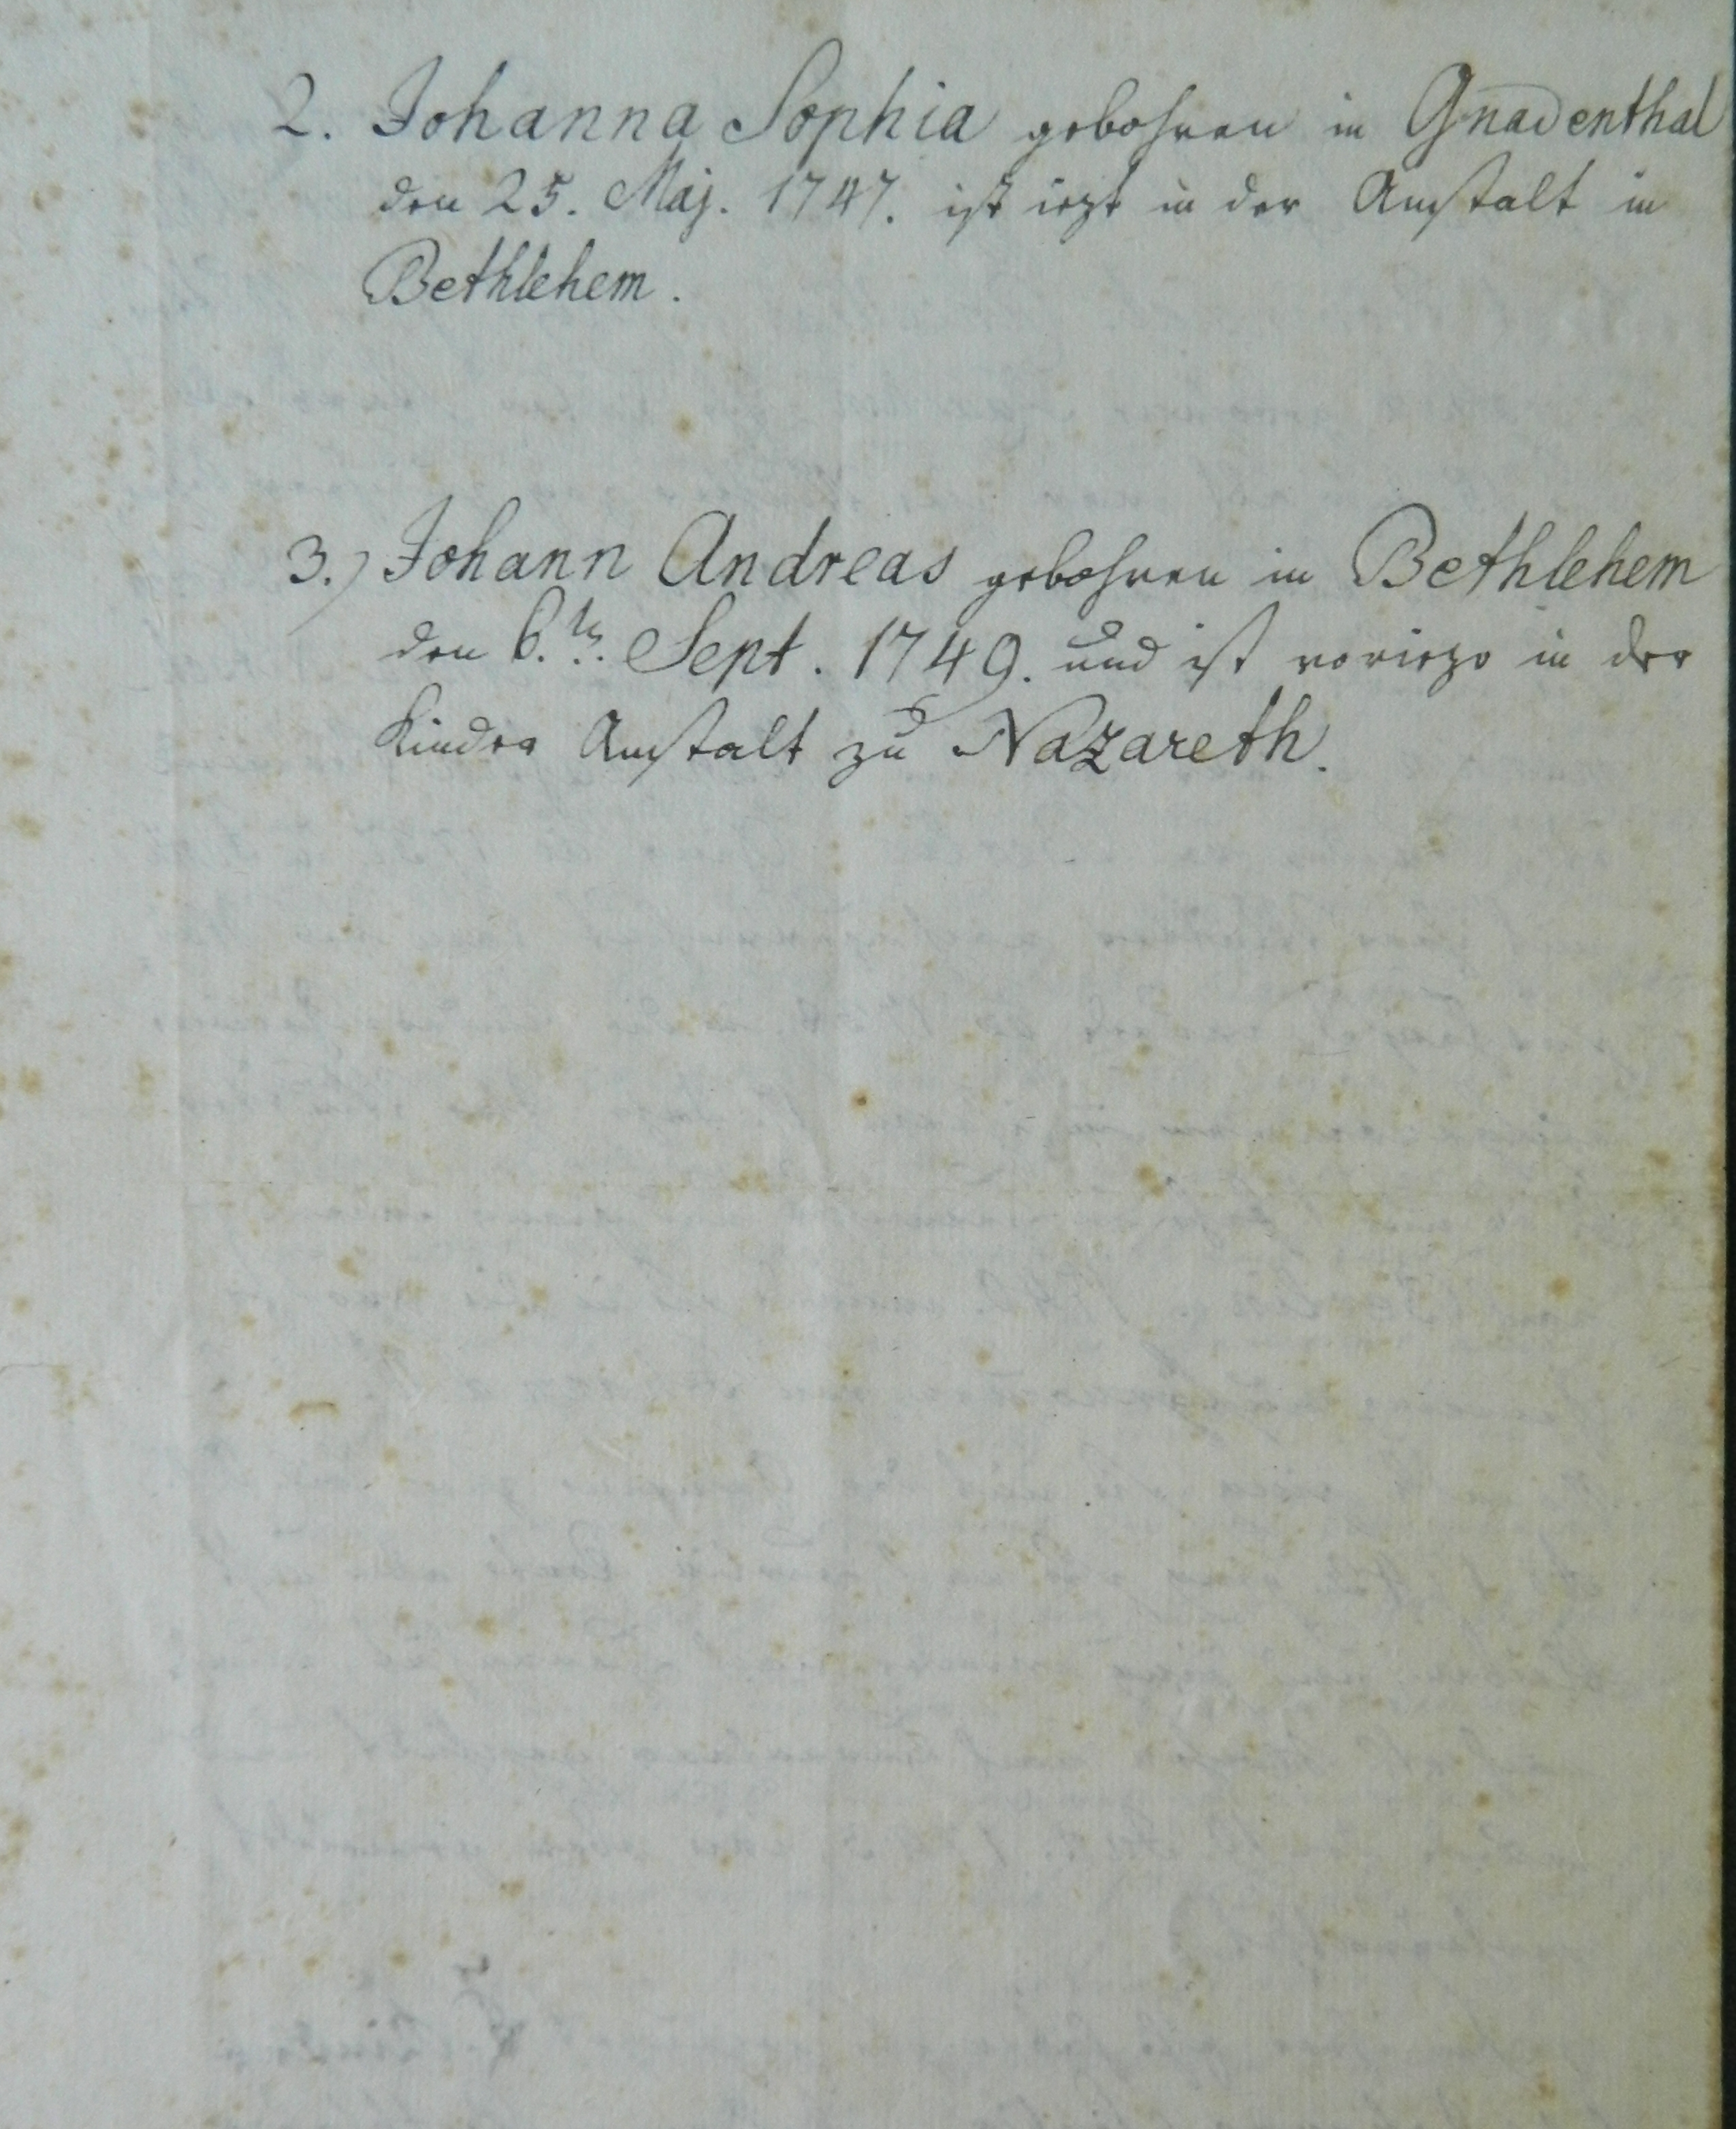 2. Johanna Sophia gebohren in Gnadenthal
den 25. Maj. 1747. ist iezt in der Anstalt in
Bethlehem.
3.) Johann Andreas gebohren in Bethlehem
den 6.tn. Sept. 1749. und ist voriezo in der
Kinder Anstalt zu Nazareth.